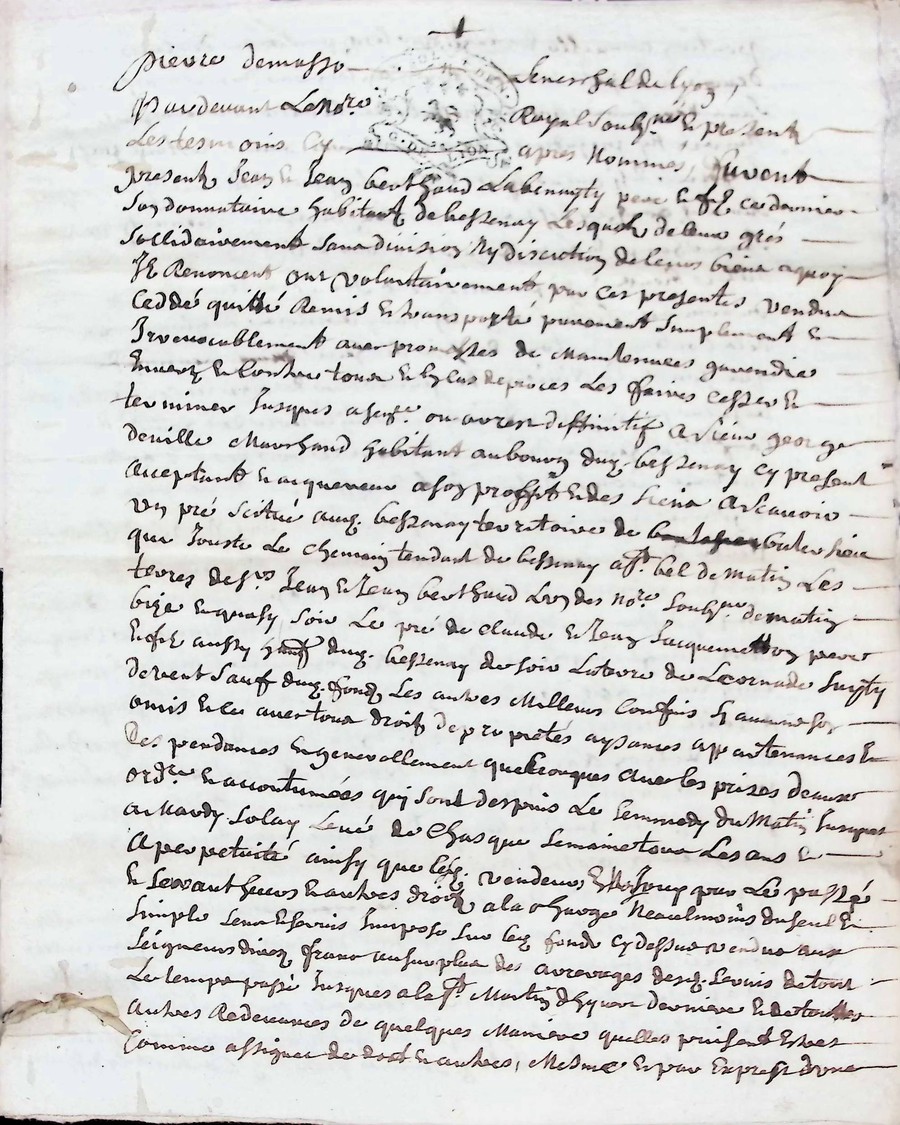 pierre demasso Seneschal de Lyon,
Pardevant Le No.re Royal Soubz.né Et present
Les tesmoins Cy apres Nommés, furent
present Jean Et Jean berthaud Labenayty pere Et fiz ce dernier
Son donnataire habitant de bessenay Lesquels de leur grés
Sollidairement Sans division Ny discution de leurs biens a quoy
JlZ Renoncent ont volontairement par ces presentes vendu
Ceddé quitté Remis Et transporté purement Simplement Et
Jrrevocablement avec promesses de Maintenues garendie
Envers Et Contre tous Et En Cas de proces Les faires Cesser Et
terminer Jusques a ou arrest diffinitif a Sieur george
deville Marchand habitant au bourg dud. bessenay Cy present
acceptant Et acquereur a Soy proffit Et des Siens a Scavoir
Un pré Scitué aud. bessenay territoire de
qui Jouste Le Chemin tendant de bessenay a St. bel de matin Les
terres desd. Jean Et Jean berthaud Lun des No.re Soubz. de matin
bize Et quasy Soir Le pré de Claude Et Jean Jacquemetton pere
Et fiz aussy dud. bessenay de Soir La terre de Leonard
de vent Sauf dud. fond Les autres Milleurs Confins Sy aucune Soy
omis Et ce avec tous droits de proprietés aysances appartenances Et
Des pendances Et generallement quelconques avec les prises deaux
ord.re Et acoutumées qui Sont despuis Le Semmedy du Matin Jusques
au Mardy Solay Levé de Chasque Semaine tous Les ans Et
a perpetuité ainsy que led. vendeurs En ont Jouy par Le passé
Et Sexant heurs Et autres droits a la Charge Neaulmoins du Seul Et
Simple Sens Et Servis Jmposé Sur led. fond Cy dessus vendus aux
Seigneurs direz franc au Surplus des arrerages desd. Servis de tout
Le temps passé Jusques a la St. Martin dhyvert derniere Et de touttes
autres Redevances de quelques Maniere quelles puissent Estres
Comme assignat de dot Et autres, Mesme Et par Expres dune